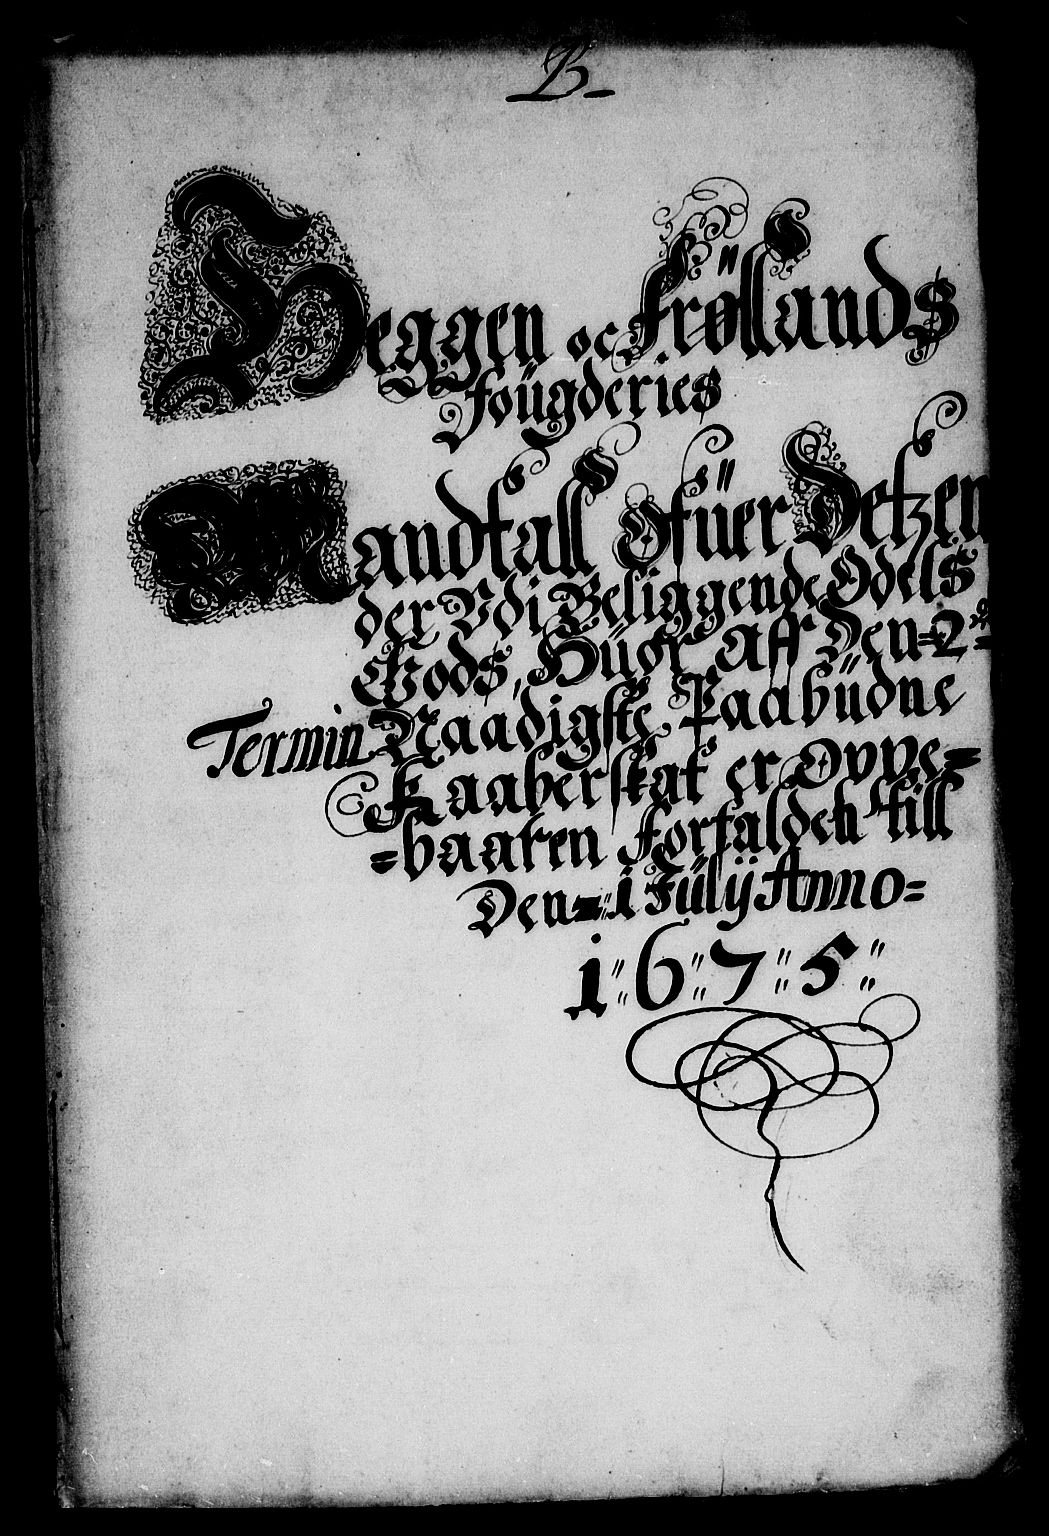 B
Heggen oc Frøllands
fougderies
Mandtall Ofuer Detzen
der Vdi Beliggende Odels
Gods, Huor aff Den 2den
Termin Naadigste Paabudne
Kaaberskat er Oppe=
=baaren forfalden till
Den 1 Julÿ Anno=
1675